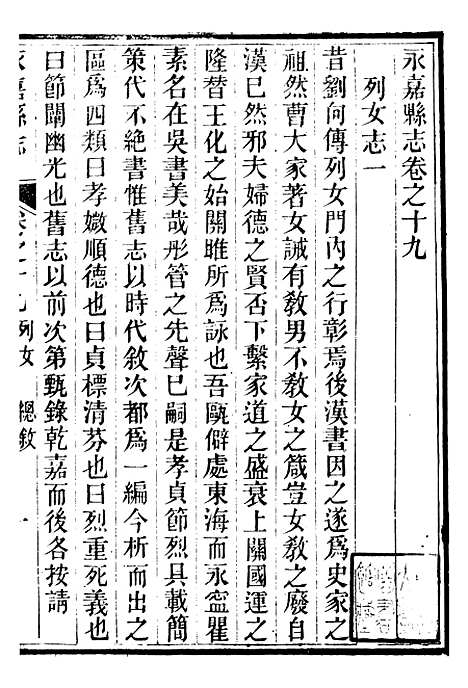 永嘉縣志卷之十九
列女志一
昔劉向傳列女門內之行彰焉後漢書因之遂爲史家之
祖然曹大家著女誡有教男不教女之箴豈女教之廢自
漢已然邪夫婦德之賢否下繫家道之盛衰上關國運之
隆替王化之始關雎所爲詠也吾甌僻處東海而永寍瞿
素名在吳書美哉彤管之先聲已嗣是孝貞節烈具載簡
策代不絕書惟舊志以時代敘次都爲一編今析而出之
區爲四類曰孝媺順德也曰貞標清芬也曰烈重死義也
曰節闡幽光也舊志以前次第甄錄乾嘉而後各按請
永嘉縣志 卷之十九 列女 總敘 一